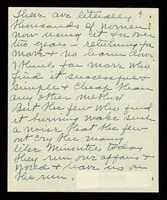 There are literally &
thousands of women
now using it for over
two years - returning the
mark & no burn down
& think far more who
find it successful &
simple & cheap than
any other method
But the few who find
it burning make such
a noise that the few
out cry the many
like Minority today
they run our affairs &
have us on
the run.